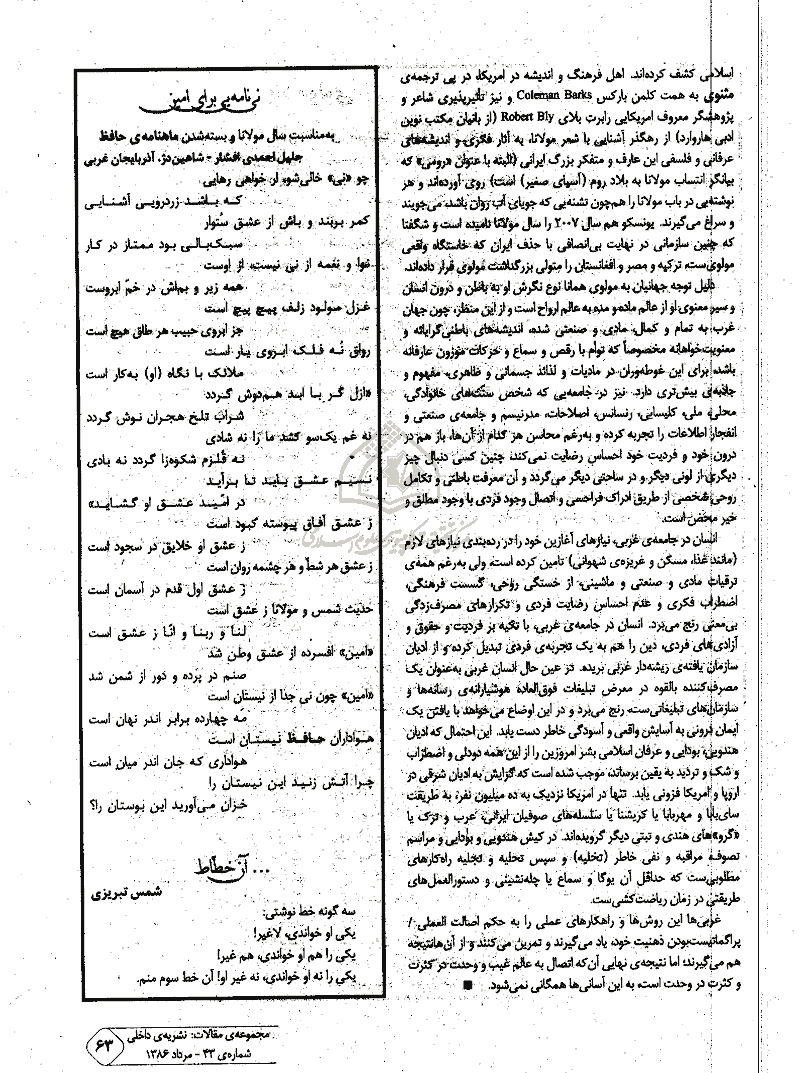 اسلامی کشف کرده‌اند. اهل فرهنگ و اندیشه در امریکا، در پی ترجمه‌ی
مثنوی به همت کلمن بارکس Coleman Barks و نیز تأثیرپذیری شاعر و
پژوهشگر معروف امریکایی رابرت بلای Robert Bly (از بانیان مکتب نوین
ادبی هاروارد) از رهگذر آشنایی با شعر مولانا، به آثار فکری و اندیشه‌های
عرفانی و فلسفی این عارف و متفکر بزرگ ایرانی (البته با عنوان «رومی» که
بیانگر انتساب مولانا به بلاد روم (آسیای صغیر) است) روی آورده‌اند و هر
نوشته‌یی در باب مولانا را هم‌چون تشنه‌یی که جویای آب روان باشد، می‌جویند
و سراغ می‌گیرند. یونسکو هم سال ۲۰۰۷ را سال مولانا نامیده است و شگفتا
که چنین سازمانی در نهایت بی‌انصافی با حذف ایران که خاستگاه واقعی
مولوی‌ست، ترکیه و مصر و افغانستان را متولی بزرگداشت مولوی قرار داده‌اند.
دلیل توجه جهانیان به مولوی همانا نوع نگرش او به باطن و درون انسان
و سیر معنوی او از عالم ماده و مده به عالم ارواح است و از این منظر، چون جهان
غرب به تمام و کمال، مادی و صنعتی شده، اندیشه‌های باطنی‌گرایانه و
معنویت‌خواهانه مخصوصاً که توأم با رقص و سماع و حرکات موزون عارفانه
باشد، برای این غوطه‌وران در مادیات و لذائذ جسمانی و ظاهری، مفهوم و
جاذبه‌ی بیش‌تری دارد. نیز در جامعه‌یی که شخص سنت‌های خانوادگی،
محلی، ملی، کلیسایی، رنسانس، اصلاحات، مدرنیسم و جامعه‌ی صنعتی و
انفجار اطلاعات را تجربه کرده و به‌رغم محاسن هر کدام از آن‌ها، باز هم در
درون خود و فردیت خود احساس رضایت نمی‌کند، چنین کسی دنبال چیز
دیگری از لونی دیگر و در ساحتی دیگر می‌گردد و آن معرفت باطنی و تکامل
روحی شخصی از طریق ادراک فراحسی و اتصال وجود فردی با وجود مطلق و
خیر محض است.
انسان در جامعه‌ی غربی، نیازهای آغازین خود را در رده‌بندی نیازهای لازم
(مانند غذا، مسکن و غریزه‌ی شهوانی) تامین کرده است، ولی به‌رغم همه‌ی
ترقیات مادی و صنعتی و ماشینی، از خستگی روحی، گسست فرهنگی،
اضطراب فکری و عدم احساس رضایت فردی و تکرارهای مصرف‌زدگی
بی‌معنی رنج می‌برد. انسان در جامعه‌ی غربی، با تکیه بر فردیت و حقوق و
آزادی‌های فردی، دین را هم به یک تجربه‌ی فردی تبدیل کرده و از ادیان
سازمان یافته‌ی ریشه‌دار غربی بریده. در عین حال انسان غربی به‌عنوان یک
مصرف‌کننده بالقوه در معرض تبلیغات فوق‌العاده هوشیارانه‌ی رسانه‌ها و
سازمان‌های تبلیغاتی‌ست، رنج می‌برد و در این اوضاع می‌خواهد با یافتن یک
ایمان درونی به آسایش واقعی و آسودگی خاطر دست یابد. این احتمال که ادیان
هندویی، بودایی و عرفان اسلامی بشر امروزین را از این همه دودلی و اضطراب
و شک و تردید به یقین برساند، موجب شده است که گرایش به ادیان شرقی در
اروپا و امریکا فزونی یابد. تنها در امریکا نزدیک به ده میلیون نفر، به طریقت
سای‌بابا و مهربابا یا کریشنا یا سلسله‌های صوفیان ایرانی، عرب و ترک یا
«گرو»های هندی و تبتی دیگر گرویده‌اند. در کیش هندویی و بودایی و مراسم
تصوف مراقبه و نفی خاطر (تخلیه) و سپس تحلیه و تجلیه راه‌کارهای
مطلوبی‌ست که حداقل آن یوگا و سماع یا چله‌نشینی و دستورالعمل‌های
طریقتی در زمان ریاضت‌کشی‌ست.
غربی‌ها این روش‌ها و راهکارهای عملی را به حکم اصالت العملی /
پراگماتیست‌بودن ذهنیت خود، یاد می‌گیرند و تمرین می‌کنند و از آن‌ها نتیجه
هم می‌گیرند؛ اما نتیجه‌ی نهایی آن‌که اتصال به عالم غیب و وحدت در کثرت
و کثرت در وحدت است، به این آسانی‌ها همگانی نمی‌شود. ■
نی‌نامه‌یی برای امین
به‌مناسبت سال مولانا و بسته‌شدن ماهنامه‌ی حافظ
جلیل احمدی افشار - شاهین‌دژ، آذربایجان غربی
چو «نی» خالی‌شو، ار خواهی رهایی
که باشد زردرویی آشنایی
کمر بربند و باش از عشق ستوار
سبک‌بالی بود ممتاز در کار
نوا و نغمه از نی نیست، از اوست
همه زیر و بم‌اش در خم ابروست
غزل مولود زلف پیچ پیچ است
جز ابروی حبیب هر طاق هیچ است
رواق نُه فلک ابروی یار است
ملائک با نگاه (او) به‌کار است
«ازل گر با ابد هم‌دوش گردد
شراب تلخ هجران نوش گردد
نه غم یک‌سو کشد ما را نه شادی
نه قلزم شکوه‌زا گردد نه بادی
نسیم عشق باید تا برآید
در امید عشق او گشاید»
ز عشق آفاق پیوسته کبود است
ز عشق او خلایق در سجود است
ز عشق هر شط و هر چشمه روان است
ز عشق اول قدم در آسمان است
حدیث شمس و مولانا ز عشق است
لنا و ربنا و انّا ز عشق است
«امین» افسرده از عشق وطن شد
صنم در پرده و دور از شمن شد
«امین» چون نی جدا از نیستان است
مه چهارده برابر اندر نهان است
هواداران حافظ نیستان است
هواداری که جان اندر میان است
چرا آتش زنید این نیستان را
خزان می‌آورید این بوستان را؟
... آن خطاط
شمس تبریزی
سه گونه خط نوشتی:
یکی او خواندی، لاغیر!
یکی را هم او خواندی، هم غیر!
یکی را نه او خواندی، نه غیر او! آن خط سوم منم.
مجموعه‌ی مقالات: نشریه‌ی داخلی
شماره‌ی ۴۳ - مرداد ۱۳۸۶
۶۳